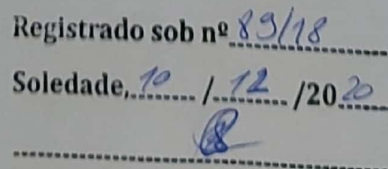 Registrado sob nº 89/18
Soledade, 10 / 12 /20 20